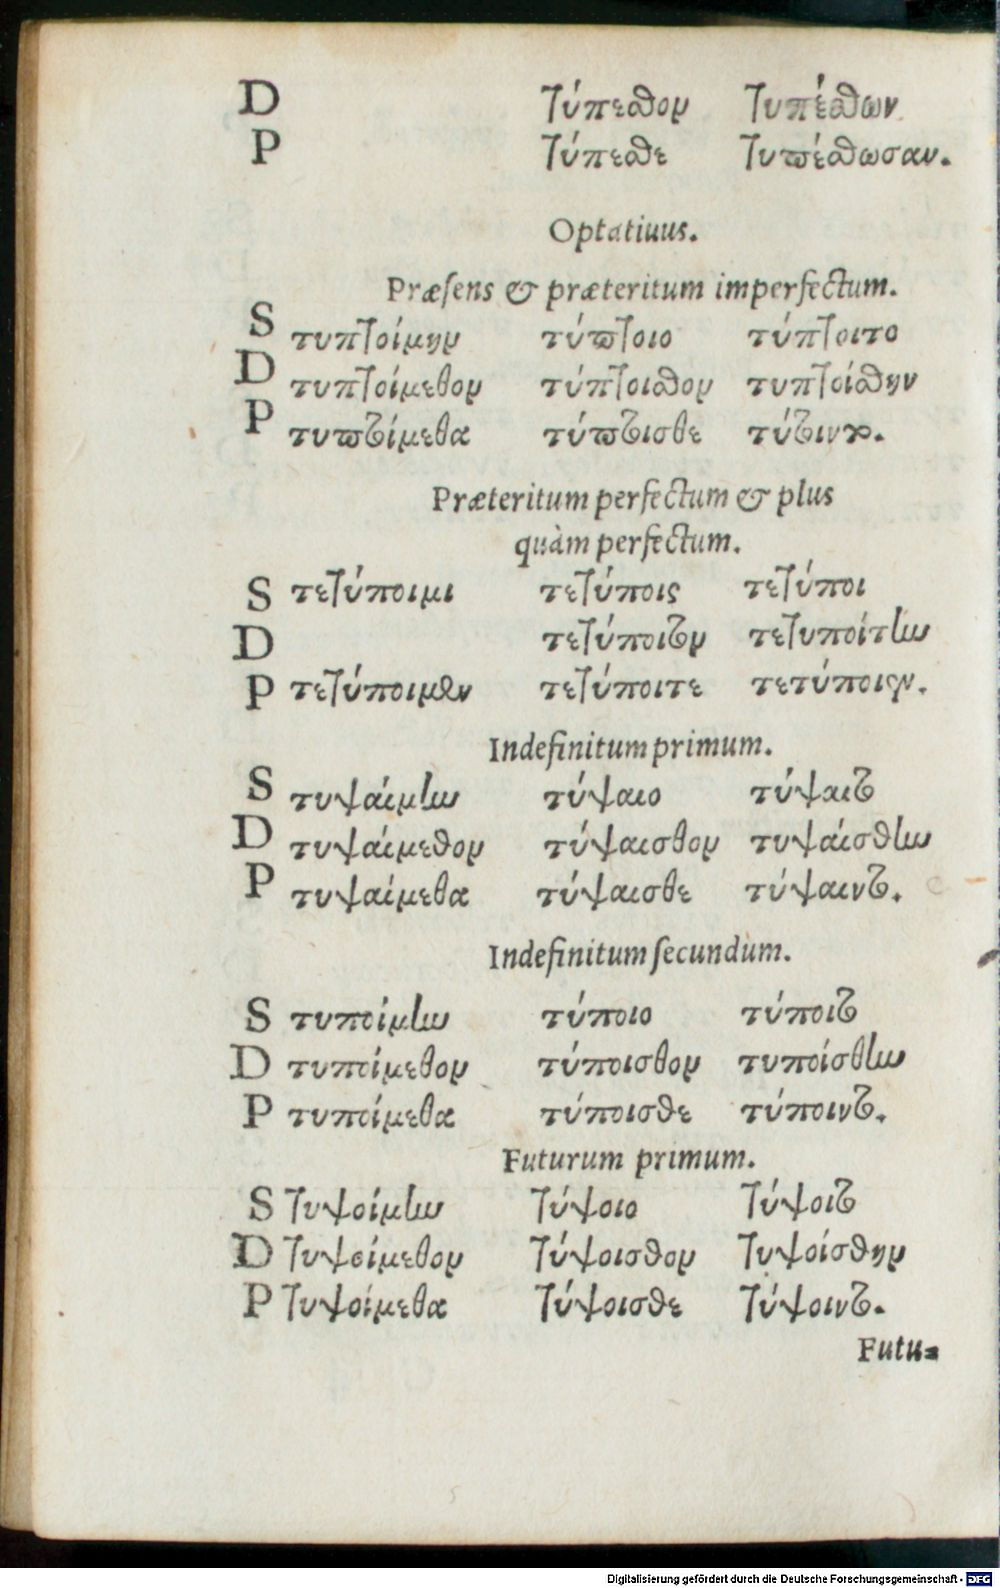 D τύπεσθον τυπέσθων
P τύπεσθε τυπέσθωσαν.
Optatiuus.
Præsens & præteritum imperfectum.
S τυπτοίμην τύπτοιο τύπτοιτο
D τυπτοίμεθον τύπτοισθον τυπτοίσθην
P τυπτοίμεθα τύπτοισθε
Præteritum perfectum & plus
quàm perfectum.
S τετύποιμι τετύποις τετύποι
D τετύποιτον τετυποίτην
P τετύποιμεν τετύποιτε τετύποιεν.
Indefinitum primum.
S τυψαίμην τύψαιο τύψαιτο
D τυψαίμεθον τύψαισθον τυψαίσθην
P τυψαίμεθα τύψαισθε τύψαιντο.
Indefinitum secundum.
S τυποίμην τύποιο τύποιτο
D τυποίμεθον τύποισθον τυποίσθην
P τυποίμεθα τύποισθε τύποιντο.
Futurum primum.
S τυψοίμην τύψοιο τύψοιτο
D τυψοίμεθον τύψοισθον τυψοίσθην
P τυψοίμεθα τύψοισθε τύψοιντο.
Futu-
Digitalisierung gefördert durch die Deutsche Forschungsgemeinschaft - DFG